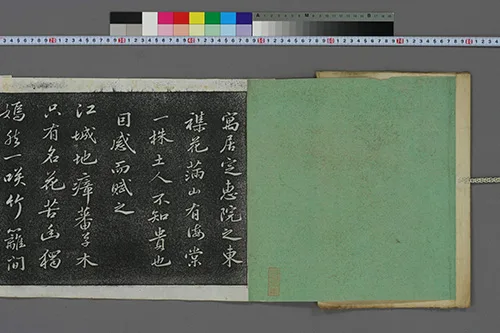 寓居定惠院之東
襍花滿山有海棠
一株土人不知貴也
因感而賦之
江城地瘴蕃草木
只有名花苦幽獨
嫣然一咲竹籬間